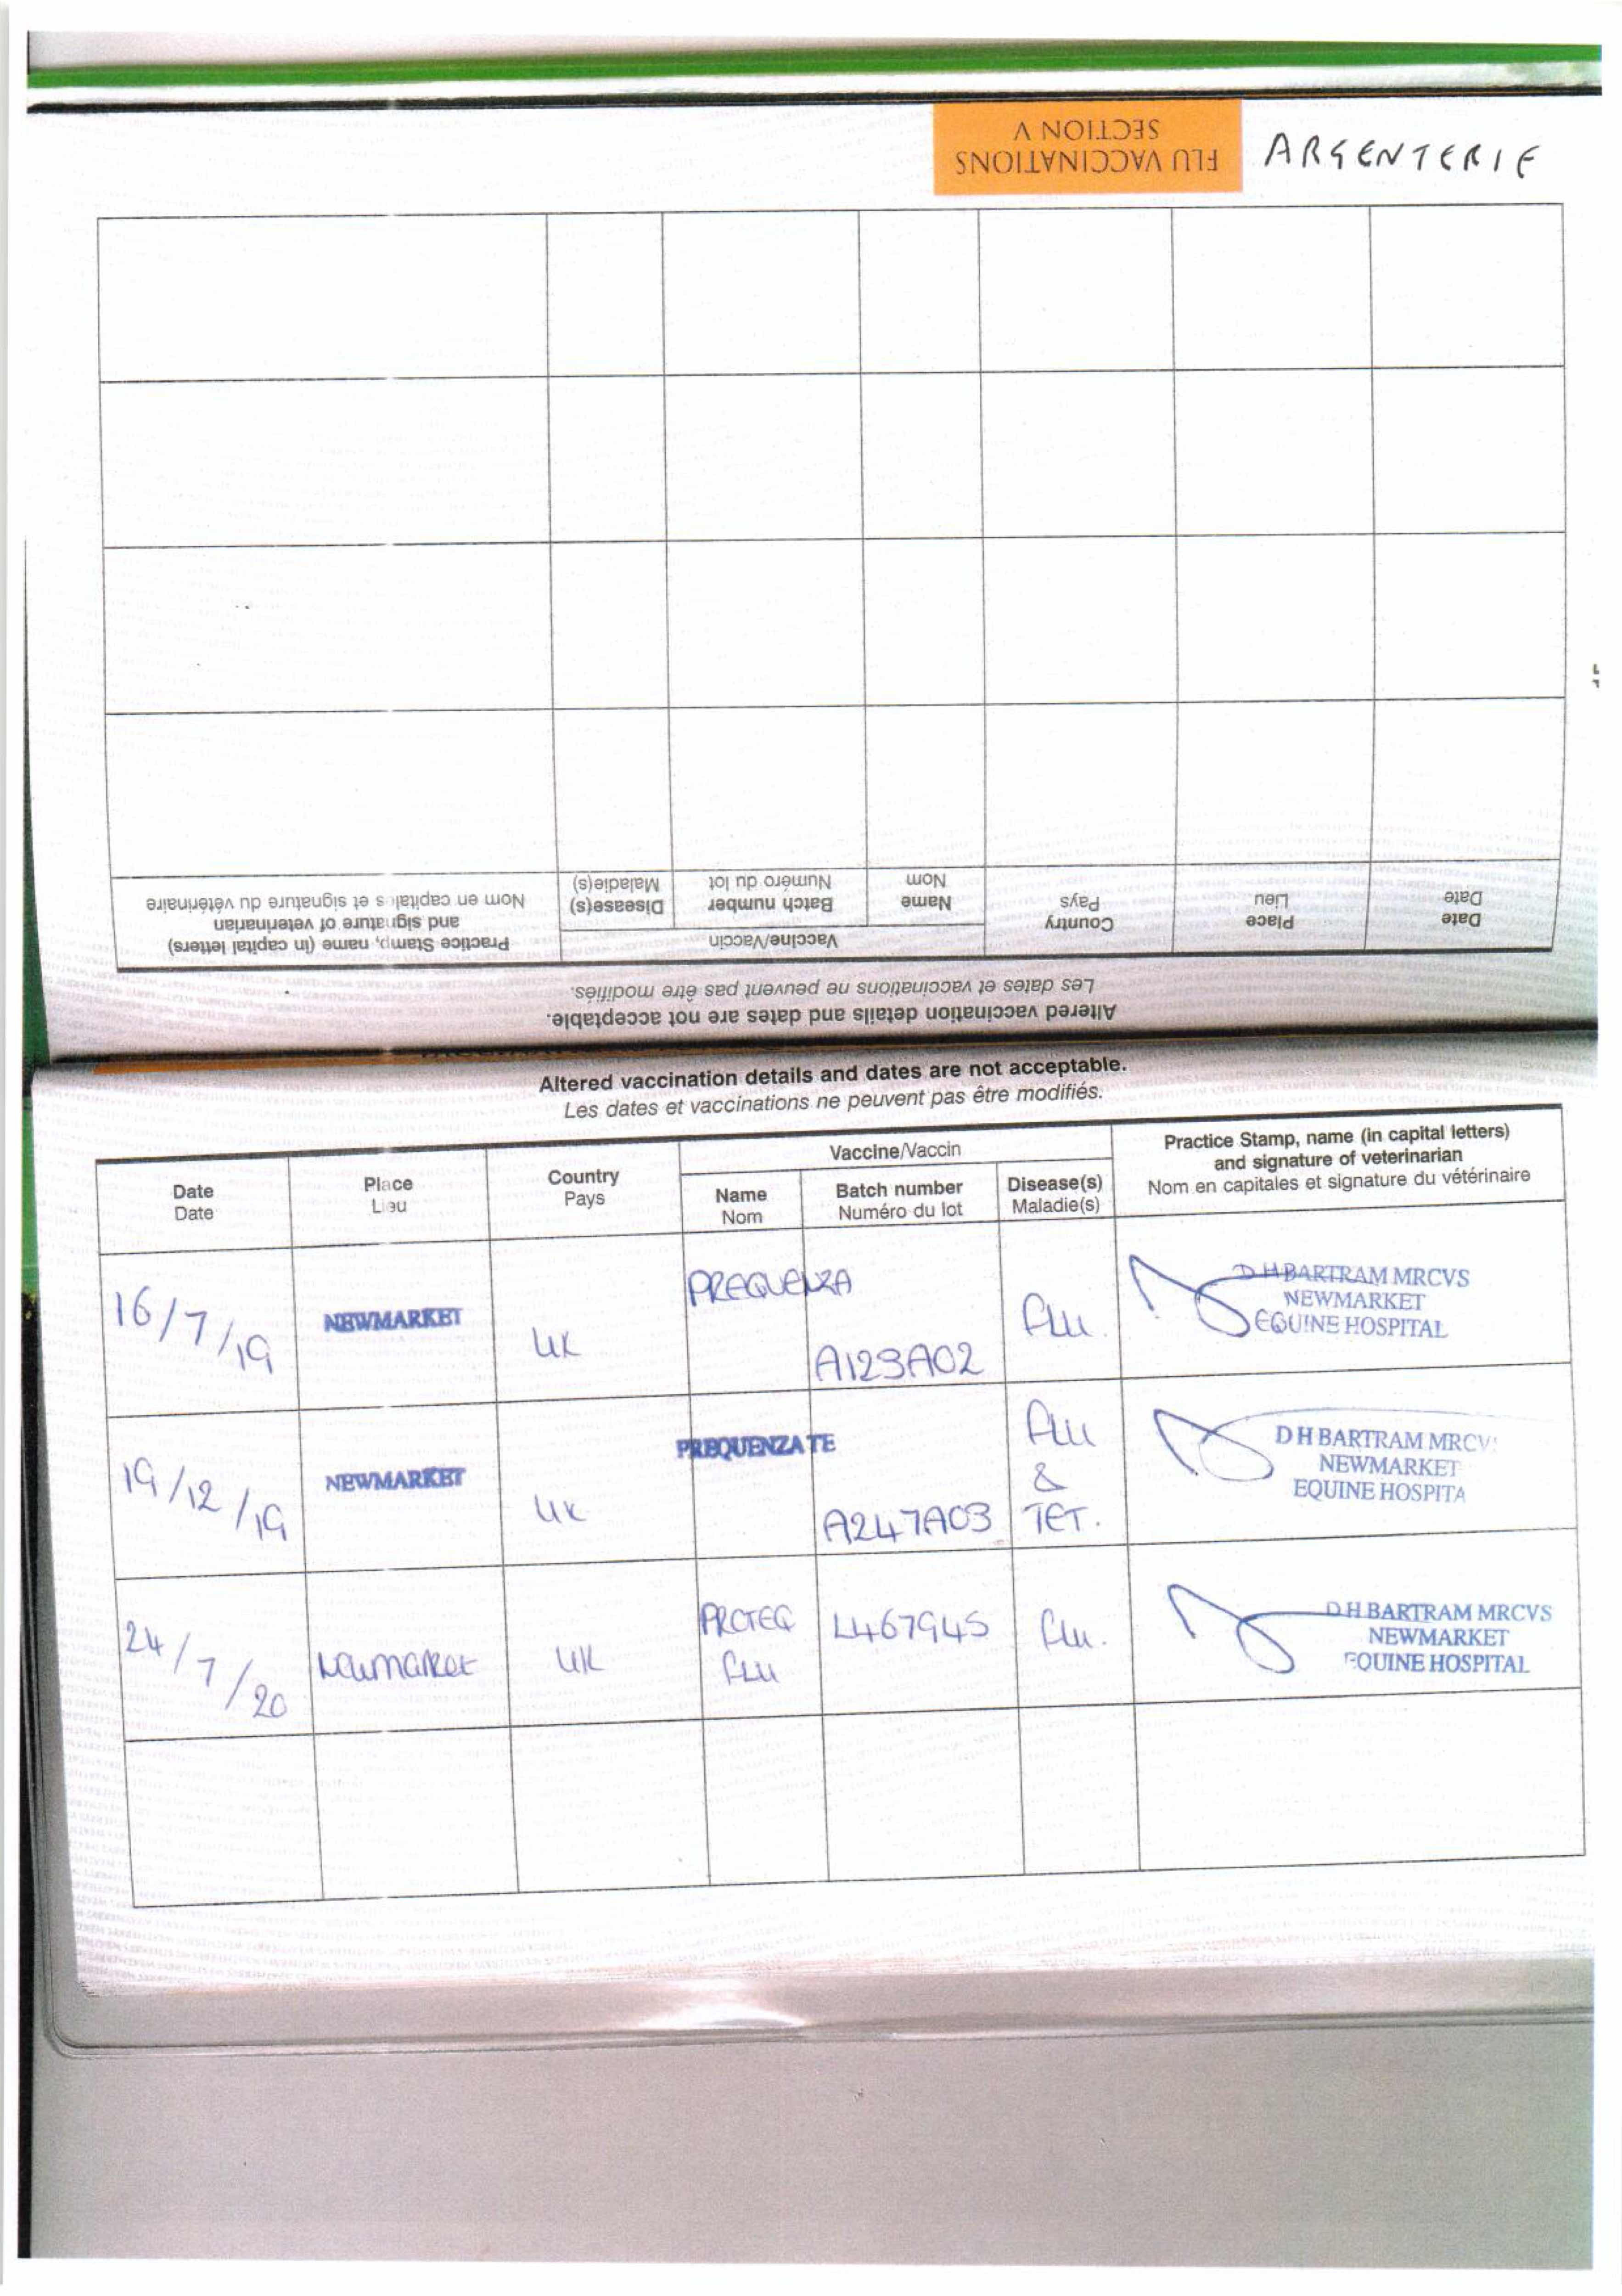 FLU VACCINATIONS
SECTION V
ARGENTERIE
Altered vaccination details and dates are not acceptable.
Les dates et vaccinations ne peuvent pas être modifiés.
Date
Date
Place
Lieu
Country
Pays
Vaccine/Vaccin
Name
Nom
Batch number
Numéro du lot
Disease(s)
Maladie(s)
Practice Stamp, name (in capital letters)
and signature of veterinarian
Nom en capitales et signature du vétérinaire
Altered vaccination details and dates are not acceptable.
Les dates et vaccinations ne peuvent pas être modifiés.
Date
Date
Place
Lieu
Country
Pays
Vaccine/Vaccin
Name
Nom
Batch number
Numéro du lot
Disease(s)
Maladie(s)
Practice Stamp, name (in capital letters)
and signature of veterinarian
Nom en capitales et signature du vétérinaire
16/7/19
NEWMARKET
UK
PREQUENZA
A123A02
Flu.
D H BARTRAM MRCVS
NEWMARKET
EQUINE HOSPITAL
19/12/19
NEWMARKET
UK
PREQUENZA TE
A247A03
Flu
&
TET.
D H BARTRAM MRCVS
NEWMARKET
EQUINE HOSPITA
24/7/20
Newmarket
UK
PROTEQ
FLU
L467945
Flu.
D H BARTRAM MRCVS
NEWMARKET
EQUINE HOSPITAL